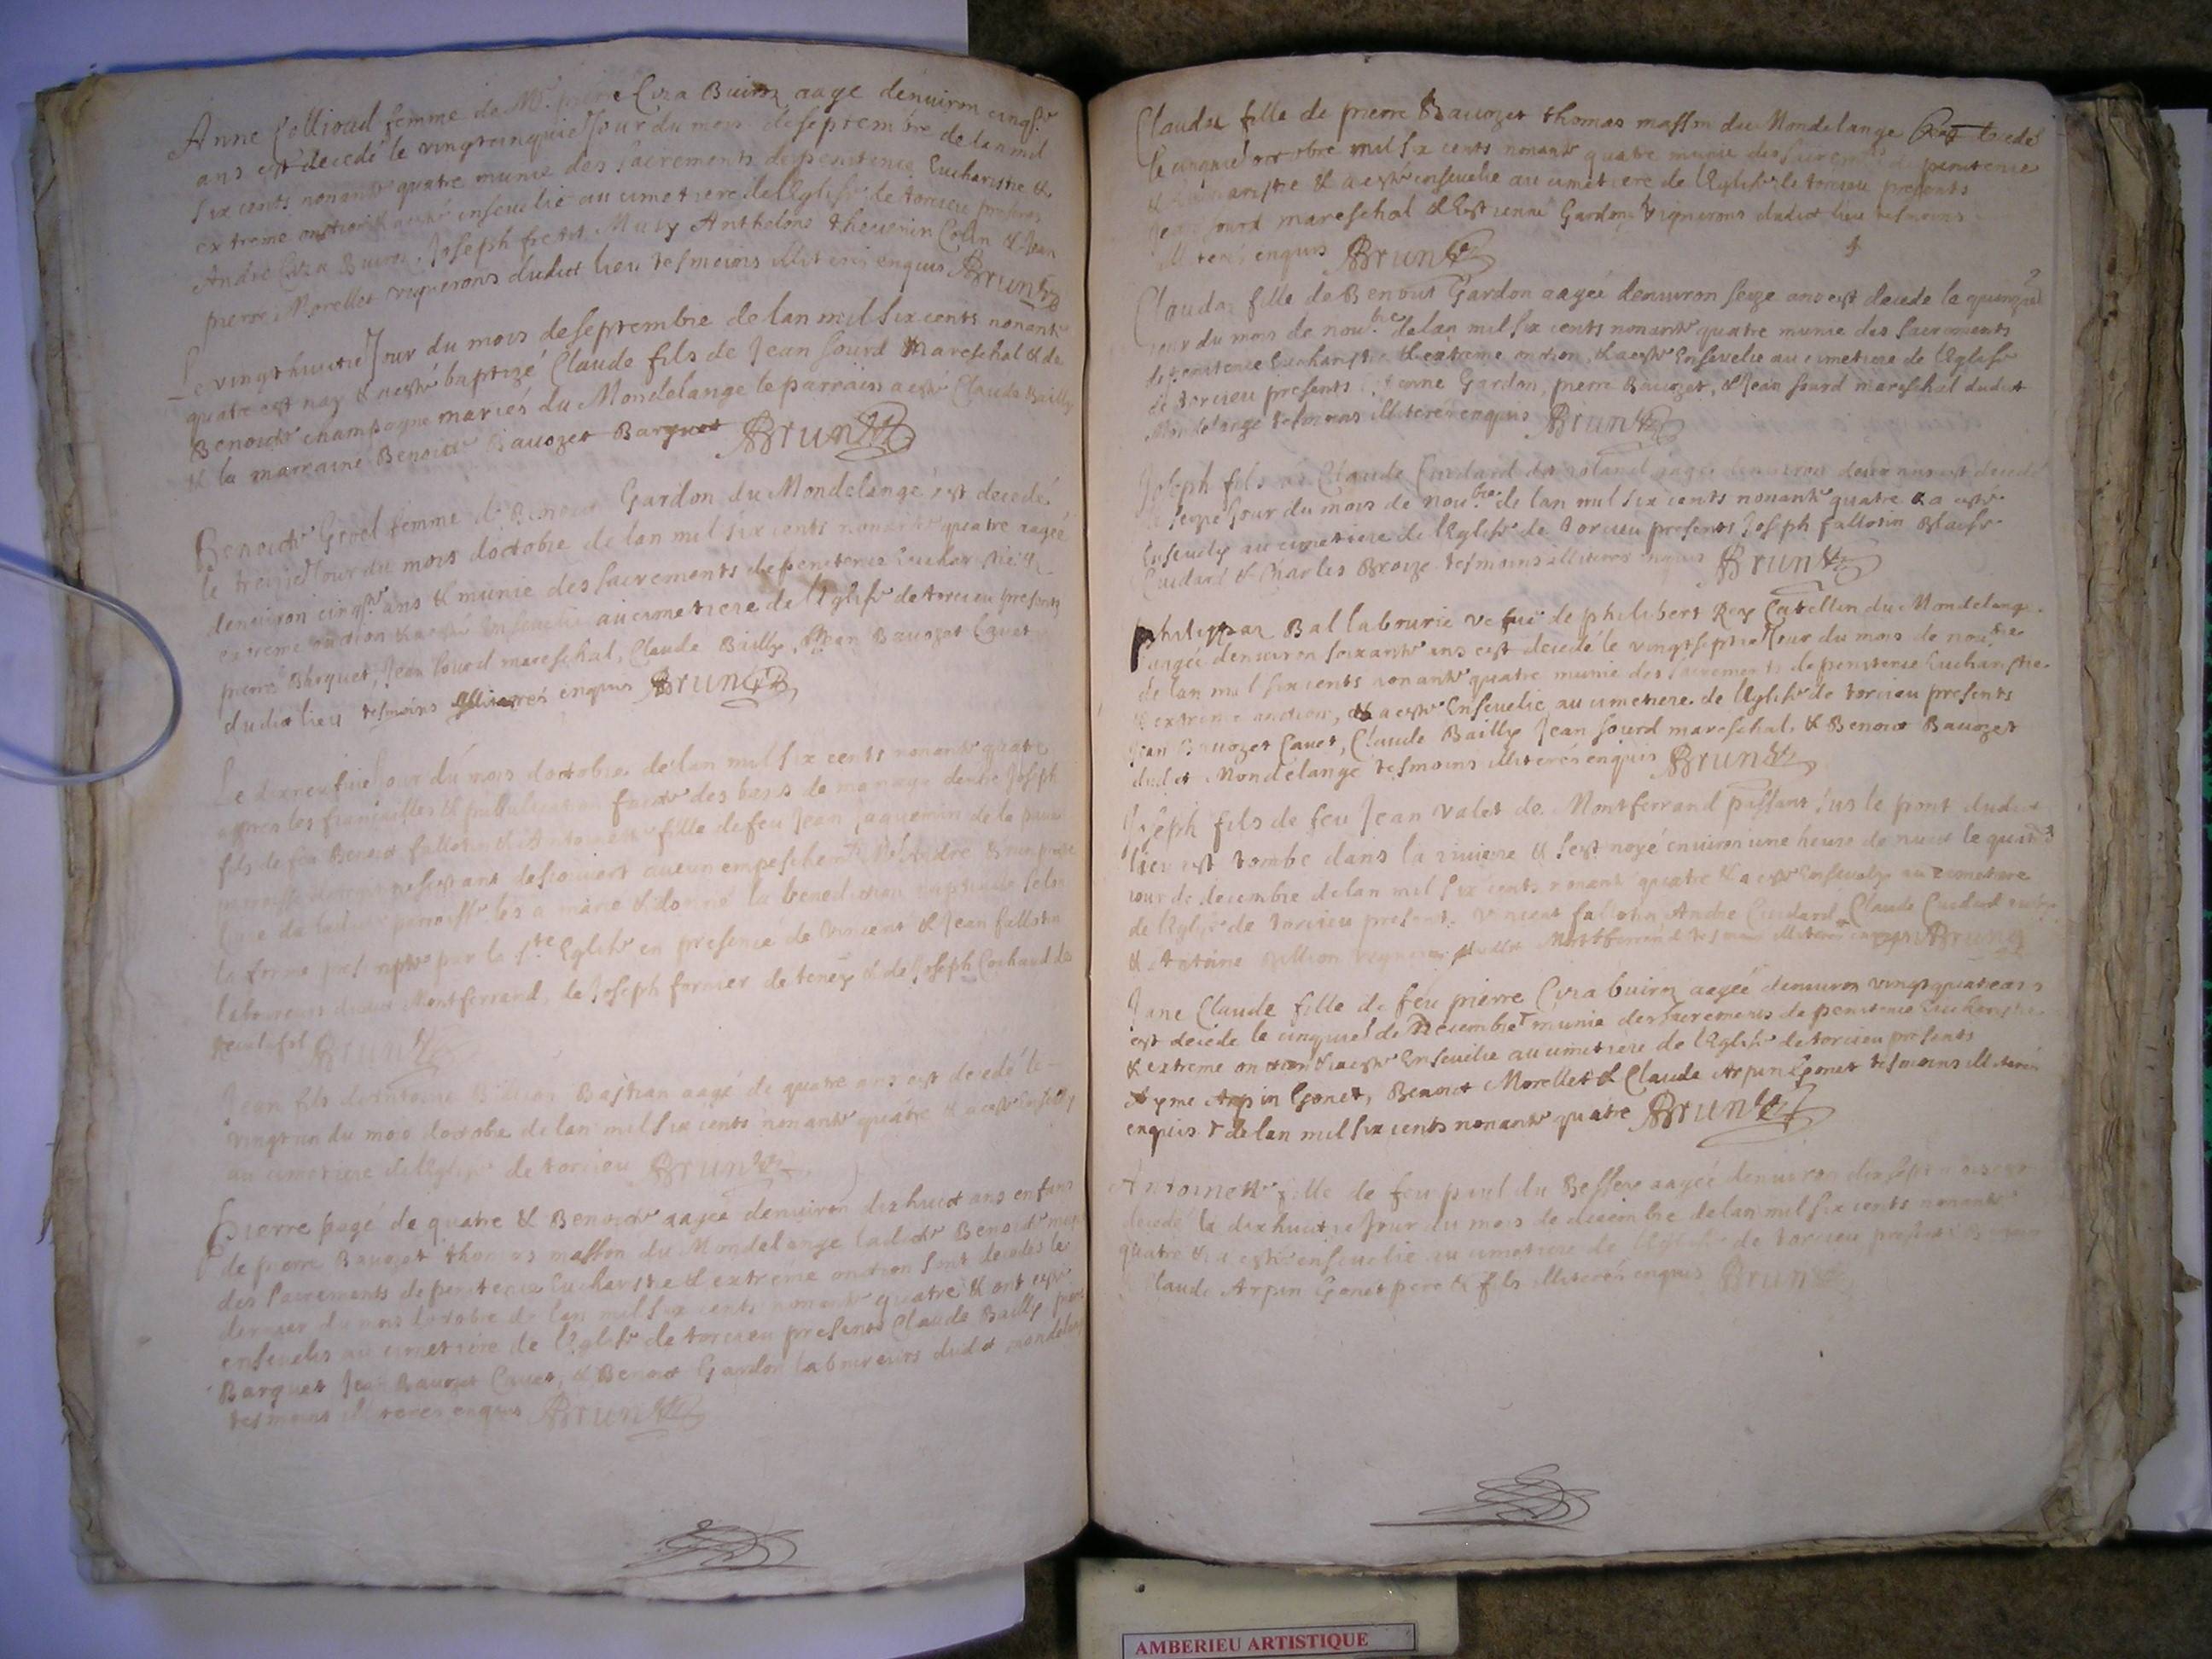 Anne femme de Mr pierre Cyza Buiron aage denuiron cinqte
ans est decedé le vingtcinquie Jour du mois de septembre de lan mil
six cents nonante quatre munie des sacrements de penitence Eucharistie &
extreme onction & a esté enseuelie au cimetiere de lEglise de torcieu presents
André Cyza Buiron, Joseph Musy Anthelme theuenin Colin & Jean
pierre Morellet vignerons dudict lieu tesmoins illiterés enquis Brun
Le vingthuictie Jour du mois de septembre de lan mil six cents nonante
quatre est nay & a esté baptizé Claude fils de Jean sourd Mareschal & de
Benoicte champagne mariés du Mondelange le parrain a esté Claude Bailly
& la marraine Benoicte Bauozet Barquet Brun
Benoicte femme de Benoict Gardon du Mondelange est decedé
le treizie Jour du mois doctobre de lan mil six cents nonante quatre aagée
denuiron cinqte ans & munie des sacrements de penitence Eucharistie &
extreme onction & a esté enseuelie au cimetiere de lEglise de torcieu presents
pierre Barquet, Jean sourd mareschal, Claude Bailly, Jean Bauozet Cauet
dudict lieu tesmoins illiterés enquis Brun
Le dixneufuie Jour du mois doctobre de lan mil six cents nonante quatre
apres les fiançailles & publication faicte des bans de mariage dentre Joseph
fils de feu Benoict fallotin & Antoinette fille de feu Jean Jaquemin de la
parroisse ne sestant descouuert aucun empeschement Mre André Brun
Curé de ladicte parroisse les a marié & donné la benediction nuptialle selon
la forme prescripte par la Ste Eglise en presence de Vincent & Jean fallotin
laboureurs dudict Montferrand, de Joseph fornier de teney & de Joseph Cochaud de
Brun
Jean fils dantoine Billion Bastian aagé de quatre ans est decedé le
vingt un du mois doctobre de lan mil six cents nonante quatre & a esté Enseuely
au cimetiere de lEglise de torcieu Brun
Pierre aagé de quatre & Benoicte aagée denuiron dixhuict ans enfans
de pierre Bauozet thomas masson du Mondelange ladicte Benoicte munie
des sacrements de penitence Eucharistie & extreme onction sont decedés le
dernier du mois doctobre de lan mil six cents nonante quatre & ont esté
enseuelis au cimetiere de lEglise de torcieu presents Claude Bailly pierre
Barquet Jean Bauozet Cauet, & Benoict Gardon laboureurs dudict mondelange
tesmoins illiterés enquis Brun
Claudaz fille de pierre Bauozet thomas masson du Mondelange est decedé
le cinquie octobre mil six cents nonante quatre munie des sacremts de penitence
& Eucharistie & a esté enseuelie au cimetiere de lEglise de torcieu presents
Jean sourd mareschal & Estienne Gardon, vignerons dudict lieu tesmoins
illiterés enquis Brun
Claudaz fille de Benoict Gardon aagée denuiron seize ans est decedé le quinzie
jour du mois de noubre de lan mil six cents nonante quatre munie des sacrements
de penitence Eucharistie & extreme onction, & a esté Enseuelie au cimetiere de lEglise
de torcieu presents Estienne Gardon, pierre Bauozet, & Jean sourd mareschal dudict
Mondelange tesmoins illiterés enquis Brun
Joseph fils de Claude Cuidard aagé denuiron deux ans est decedé
le seize Jour du mois de noubre de lan mil six cents nonante quatre & a esté
Enseuely au cimetiere de lEglise de torcieu presents Joseph fallotin Blaise
Cuidard & Charles Broize tesmoins illiterés enquis Brun
philippaz Ballabourie vefue de philibert Rey Catellin du Mondelange
aagée denuiron soixante ans est decedé le vingtseptie Jour du mois de noubre
de lan mil six cents nonante quatre munie des sacrements de penitence Eucharistie
& extreme onction, & a esté Enseuelie au cimetiere de lEglise de torcieu presents
Jean Bauozet Cauet, Claude Bailly Jean sourd mareschal, & Benoict Bauozet
dudict Mondelange tesmoins illiterés enquis Brun
Joseph fils de feu Jean valet de Montferrand passant sus le pont dudict
lieu est tombe dans la riuiere & sest noyé enuiron une heure de nuict le
jour de decembre de lan mil six cents nonante quatre & a esté Enseuely au cimetiere
de lEglise de torcieu presents Vincent fallotin André Cuidard, Claude Cuidard
& Antoine Billion vignerons dudict Montferrand tesmoins illiterés enquis Brun
Jane Claude fille de feu pierre Cyza buiron aagée denuiron vingtquatre ans
est decedé le cinquie de Decembre munie des sacrements de penitence Eucharistie
& extreme onction & a esté Enseuelie au cimetiere de lEglise de torcieu presents
Ayme Arpin Gonet, Benoict Morellet & Claude Arpin Gonet tesmoins illiterés
enquis de lan mil six cents nonante quatre Brun
Antoinette fille de feu paul du Bessere aagée denuiron dix sept ans est
decedé le dixhuictie Jour du mois de decembre de lan mil six cents nonante
quatre & a esté enseuelie au cimetiere de lEglise de torcieu presents
Claude Arpin Gonet pere & fils illiterés enquis Brun
AMBERIEU ARTISTIQUE